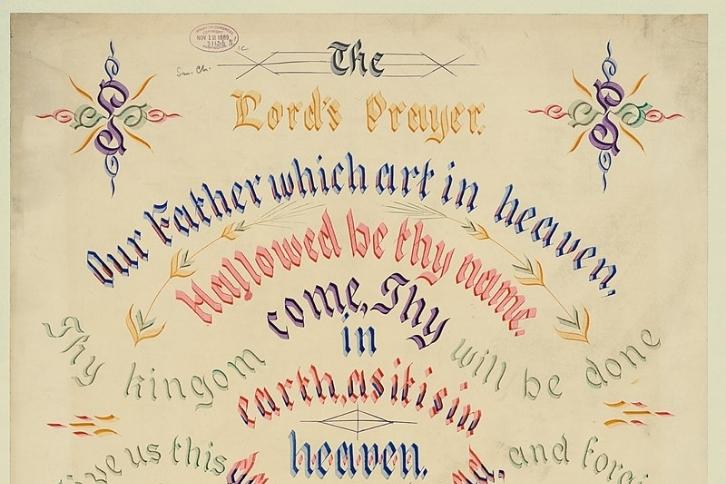 The
Lord's Prayer.
Our Father which art in heaven,
Hallowed be thy name.
Thy kingom come, Thy will be done
in
earth, as it is in
heaven.
us this
and